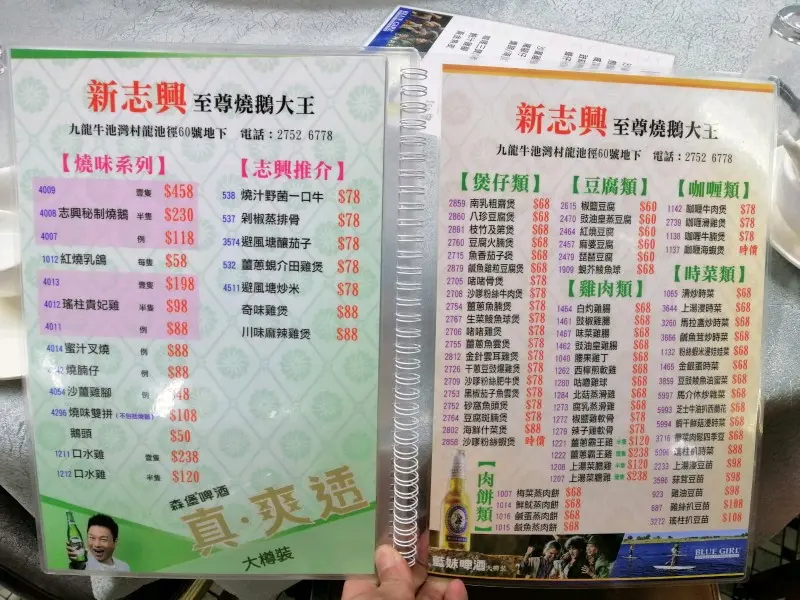 新志興 至尊燒鵝大王
九龍牛池灣村龍池徑60號地下 電話：2752 6778
【燒味系列】
4009 壹隻 $458
4008 志興秘制燒鵝 半隻 $230
4007 例 $118
1012 紅燒乳鴿 每隻 $58
4013 壹隻 $198
4012 瑤柱貴妃雞 半隻 $98
4011 例 $88
4014 蜜汁叉燒 例 $88
燒腩仔 例 $88
4054 沙薑雞腳 例 $48
4296 燒味雙拼 $108
鵝頭 $50
1211 口水雞 壹隻 $238
1212 口水雞 半隻 $120
【志興推介】
538 燒汁野菌一口牛 $78
537 剁椒蒸排骨 $78
3574 避風塘釀茄子 $78
532 薑蔥蜆介田雞煲 $78
4511 避風塘炒米 $78
奇味雞煲 $88
川味麻辣雞煲 $88
森堡啤酒
真·爽透
大樽裝
新志興 至尊燒鵝大王
九龍牛池灣村龍池徑60號地下 電話：2752 6778
【煲仔類】
2859 南乳粗齋煲 $68
2860 八珍豆腐煲 $68
2861 枝竹及第煲 $68
2760 豆腐火腩煲 $68
2715 魚香茄子煲 $68
2879 鹹魚雞粒豆腐煲 $68
2705 啫啫骨煲 $78
2708 沙嗲粉絲牛肉煲 $78
2754 薑蔥魚腩煲 $78
2767 生菜鯪魚球煲 $78
2706 啫啫雞煲 $78
2755 薑蔥魚雲煲 $78
2812 金針雲耳雞煲 $78
2726 干蔥豆豉爆雞煲 $78
2709 沙嗲粉絲肥牛煲 $78
2753 黑椒茄子魚雲煲 $78
2752 砂窩魚頭煲 $78
2764 豆腐斑腩煲 $78
2802 海鮮什菜煲 $88
2858 沙嗲粉絲蝦煲 時價
【肉餅類】
1007 梅菜蒸肉餅 $68
1014 鮮魷蒸肉餅 $68
1016 鹹蛋蒸肉餅 $68
1015 鹹魚蒸肉餅 $68
【豆腐類】
2615 椒鹽豆腐 $60
2470 豉油皇蒸豆腐 $60
2464 紅燒豆腐 $60
2457 麻婆豆腐 $60
2479 琵琶豆腐 $60
1909 蜆芥鯪魚球 $68
【雞肉類】
1464 白灼雞腸 $68
1461 豉椒雞腸 $68
1467 味菜雞腸 $68
1462 豉油皇雞腸 $68
1040 腰果雞丁 $68
1262 西檸煎軟雞 $68
1280 咕嚕雞球 $68
1284 北菇蒸滑雞 $68
1273 腐乳蒸滑雞 $68
1272 椒鹽雞軟骨 $78
1279 辣子雞軟骨 $78
1221 薑蔥霸王雞 半隻 $120
1222 薑蔥霸王雞 壹隻 $238
1208 上湯菜膽雞 半隻 $120
1207 上湯菜膽雞 壹隻 $238
【咖喱類】
1142 咖喱牛肉煲 $78
2739 咖喱滑雞煲 $78
1138 咖喱牛腩煲 $78
1137 咖喱海蝦煲 時價
【時菜類】
1065 清炒時菜 $68
3644 上湯浸時菜 $68
3260 馬拉盞炒時菜 $68
3666 鹹魚茸炒時菜 $68
1132 粉絲蝦米浸娃娃菜 $68
1465 金銀蛋時菜 $68
3859 豆豉鯪魚油麥菜 $68
5907 馬介休炒雜菜 $68
5993 芝士牛油扒西蘭花 $68
5994 蝦干鮮菇浸時菜 $68
3716 欖菜肉鬆四季豆 $68
瑤柱扒時菜 $88
2233 上湯浸豆苗 $98
3590 蒜茸豆苗 $98
923 雞油豆苗 $98
687 雞絲扒豆苗 $108
3272 瑤柱扒豆苗 $108
藍妹啤酒 大樽裝
BLUE GIRL